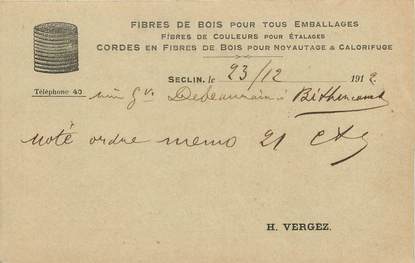 FIBRES DE BOIS POUR TOUS EMBALLAGES
FIBRES DE COULEURS POUR ÉTALAGES
CORDES EN FIBRES DE BOIS POUR NOYAUTAGE & CALORIFUGE
SECLIN, le 23/12 1912
Téléphone 40
à Béthencourt
Noté ordre memo 21 ct
H. VERGEZ.